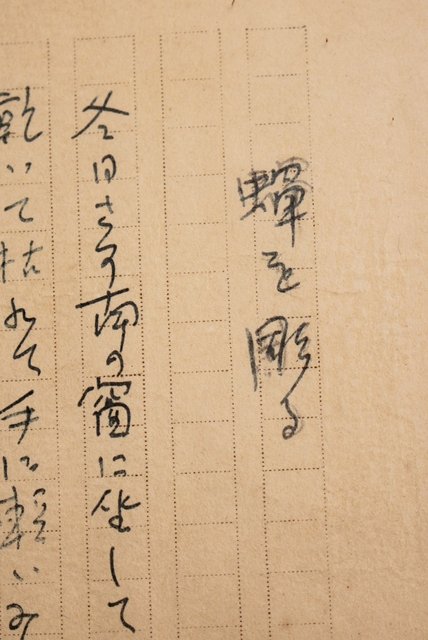 蟬を彫る
冬日さす南の窗に坐して
乾いて枯れて手に軽いみ